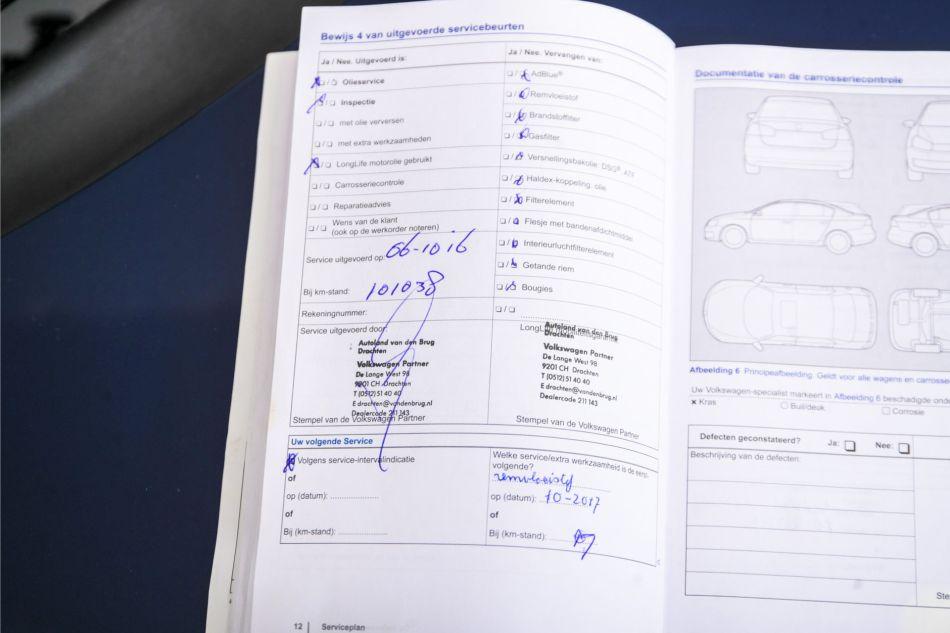 Bewijs 4 van uitgevoerde servicebeurten
Ja / Nee. Uitgevoerd is:
Olieservice
Inspectie
met olie verversen
met extra werkzaamheden
LongLife motorolie gebruikt
Carrosseriecontrole
Reparatieadvies
Wens van de klant
(ook op de werkorder noteren)
Service uitgevoerd op: 06-10 16
Bij km-stand: 101038
Rekeningnummer:
Service uitgevoerd door:
Autoland van den Brug
Drachten
Volkswagen Partner
De Lange West 98
9201 CH Drachten
T (0512) 51 40 40
E drachten@vandenbrug.nl
Dealercode 211 143
Stempel van de Volkswagen Partner
Ja / Nee. Vervangen van:
AdBlue®
Remvloeistof
Brandstoffilter
Gasfilter
Versnellingsbakolie: DSG®
Haldex-koppeling. olie
Filterelement
Flesje met bandenafdichtmiddel
Interieurluchtfilterelement
Getande riem
Bougies
Autoland van den Brug
Drachten
Volkswagen Partner
De Lange West 98
9201 CH Drachten
T (0512) 51 40 40
E drachten@vandenbrug.nl
Dealercode 211 143
Stempel van de Volkswagen Partner
Uw volgende Service
Volgens service-intervalindicatie
of
op (datum):
of
Bij (km-stand):
Welke service/extra werkzaamheid is de eerst-
volgende?
remvloeistof
op (datum): 10-2017
of
Bij (km-stand):
12 Serviceplan
Documentatie van de carrosseriecontrole
Afbeelding 6 Principeafbeelding. Geldt voor alle wagens en
Uw Volkswagen-specialist markeert in Afbeelding 6 beschadigde
x Kras
Buil/deuk
Corrosie
Defecten geconstateerd? Ja: Nee:
Beschrijving van de defecten: